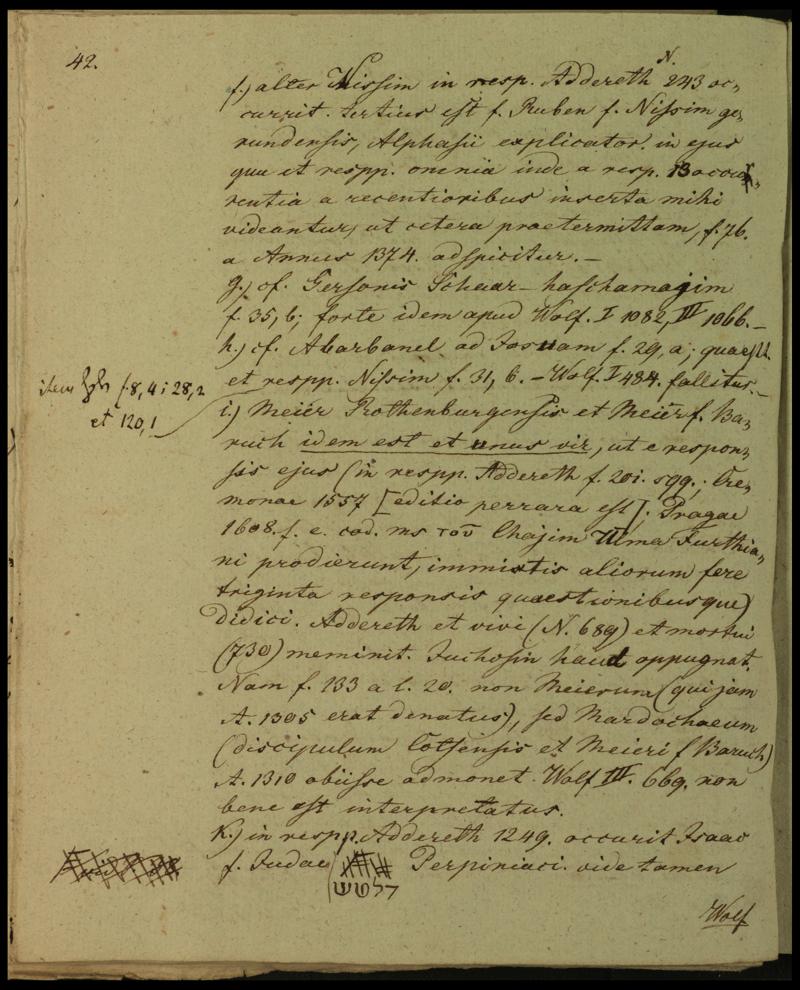 42.
f.) alter Nissim in resp. Addereth N. 243 oc-
currit. tertius est f. Ruben f. Nissim ge-
rundensis, Alphasii explicator. in ejus
quu et respp. omnia inde a resp. 13 occur-
rentia a recentioribus inserta mihi
videantur, ut cetera praetermittam, f. 76.
a Annus 1374. adspicitur. –
g.) cf. Gersonis Schaar-haschamajim
f. 35, b; forte idem apud Wolf. I 1082, III 1066. –
h.) cf. Abarbanel ad Josuam f. 29, a; quaest.
et respp. Nissim f. 31, b. – Wolf. I 484. fallitur. –
item f. 8, 4; 28, 2
et 120, 1
i.) Meier Rothenburgensis et Meier f. Ba-
ruch idem est et unus vir, ut e respon-
sis ejus (in respp. Addereth f. 201. sqq.; Cre-
monae 1557 [editio perrara est]. Pragae
1608. f. e. cod. ms τοῦ Chajim Ulma Furthia-
ni prodierunt, immixtis aliorum fere
triginta responsis quaestionibusque)
didici. Addereth et vivi (N. 689) et mortui
(730) meminit. Juchosin haud oppugnat.
Nam f. 133 a l. 20. non Meierum (qui jam
A. 1305 erat denatus), sed Mardochaeum
(discipulum Cotsensis et Meieri f Baruch)
A. 1310 obiisse admonet. Wolf III. 669. non
bene est interpretatus.
K.) in respp. Addereth 1249. occurit Isaac
f. Judae דלטש Perpiniaci. vide tamen
Wolf